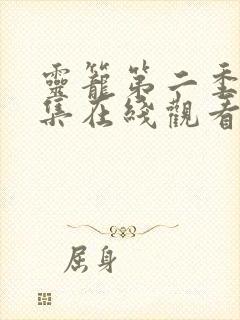 靈籠第二季
集在綫觀看
屈身